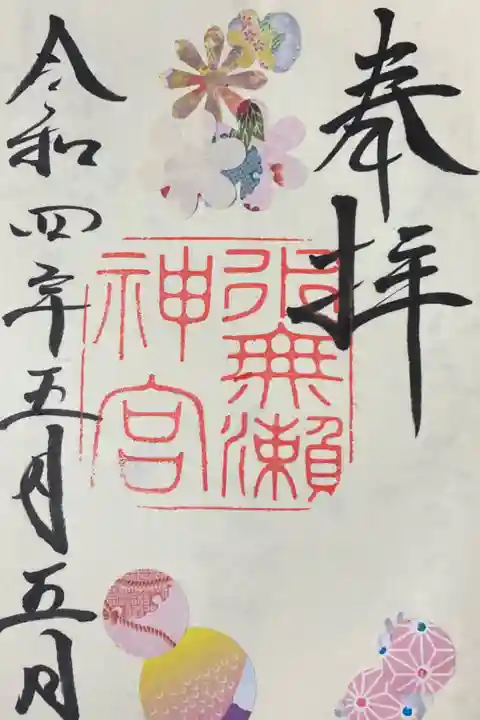 奉拝
水無瀬
神宮
令和四年五月五日